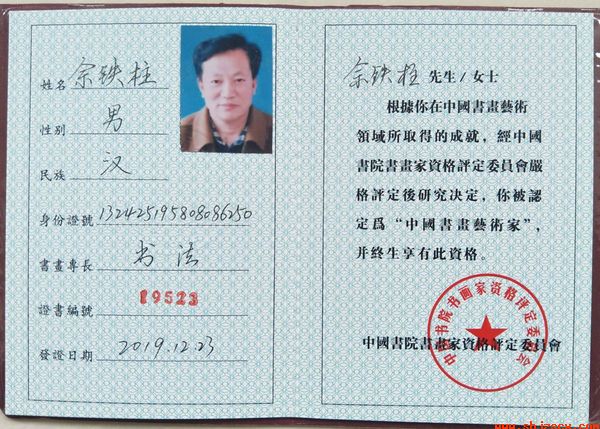 姓名 余铁柱
性别 男
民族 汉
身份證號 132425195808086250
書畫專長 书法
證書編號 19523
發證日期 2019.12.23
余铁柱 先生/女士
根據你在中國書畫藝術
領域所取得的成就，經中國
書院書畫家資格評定委員會嚴
格評定後研究决定，你被認
定爲“中國書畫藝術家”，
并終生享有此資格。
中国书院书画家资格评定委员会
中國書院書畫家資格評定委員會